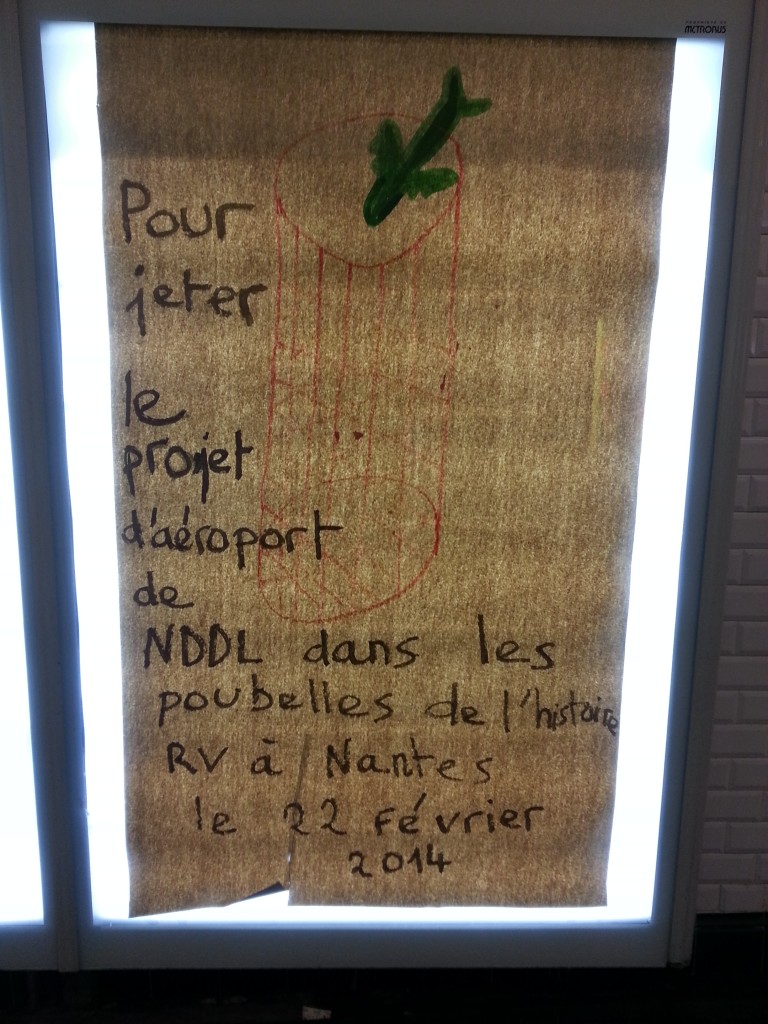 METROBUS
Pour
jeter
le
projet
d'aéroport
de
NDDL dans les
poubelles de l'histoire
RV à Nantes
le 22 Février
2014